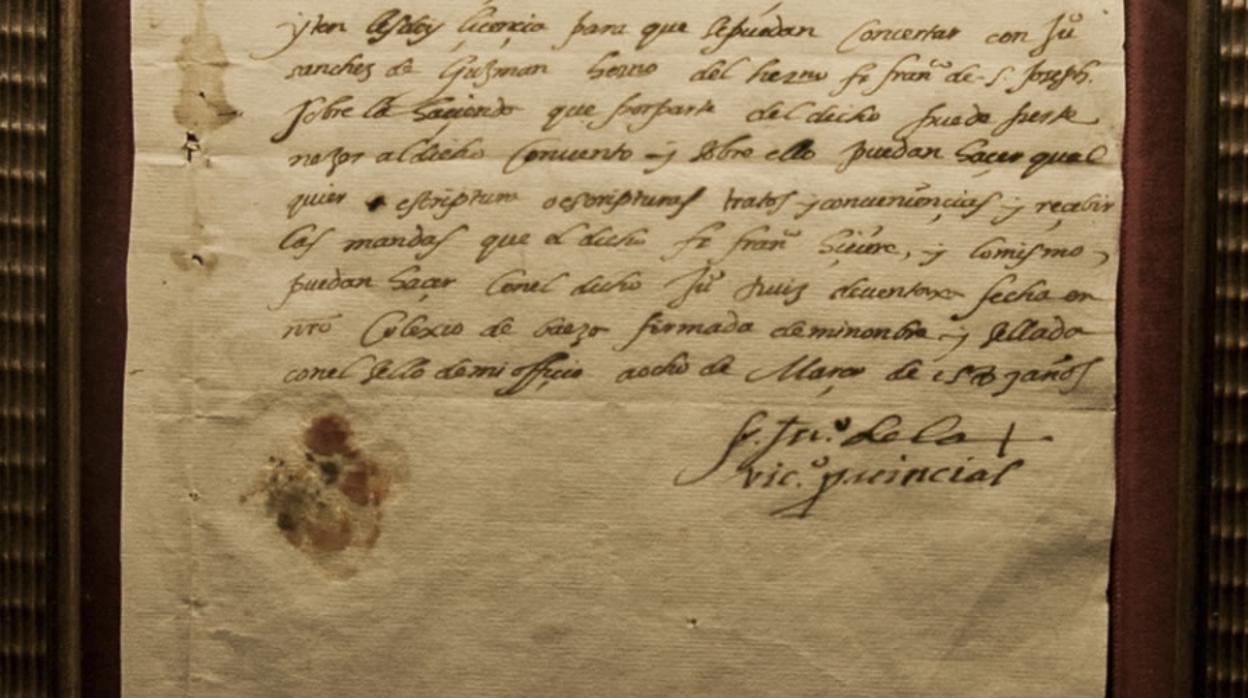 yten les doy licencia para que se puedan Concertar con Ju.º
sanchez de Guzman hermo del hermo fr franco de S. Joseph.
sobre la hacienda que por parte del dicho puede perte
nezer al dicho Convento y sobre ello puedan hacer qual
quier escriptura o escripturas tratos y convenencias y recebir
las mandas que el dicho fr franco hiciere, y lo mismo
puedan hacer con el dicho Ju.º Ruiz de ventaxa fecha en
nro Colexio de baeza firmada de mi nombre y sellada
con el sello de mi officio a ocho de Março de 1587 años
f. Ju.º de la +
vic.º provincial